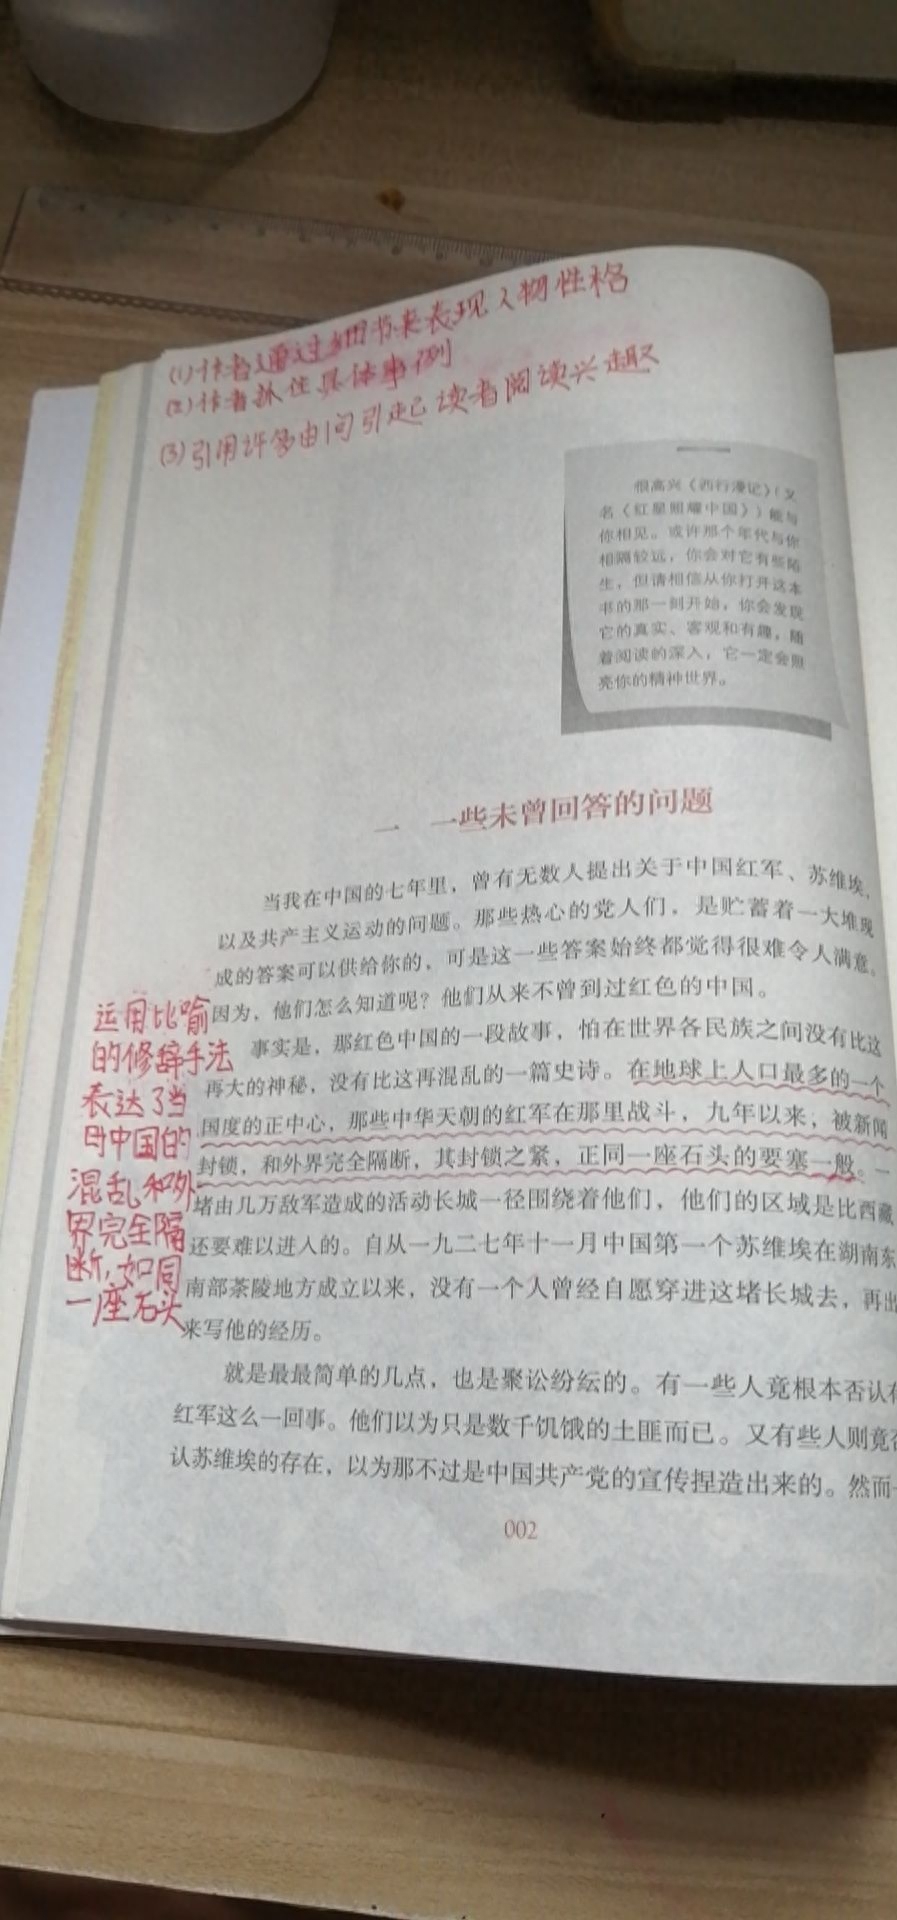 (1)作者通过细节来表现人物性格
(2)作者抓住具体事例
(3)引用许多由问引起读者阅读兴趣
很高兴《西行漫记》(又
名《红星照耀中国》)能与
你相见。或许那个年代与你
相隔较远,你会对它有些陌
生,但请相信从你打开这本
书的那一刻开始,你会发现
它的真实、客观和有趣,随
着阅读的深入,它一定会照
亮你的精神世界。
一 一些未曾回答的问题
当我在中国的七年里,曾有无数人提出关于中国红军、苏维埃,
以及共产主义运动的问题。那些热心的党人们,是贮蓄着一大堆现
成的答案可以供给你的,可是这一些答案始终都觉得很难令人满意。
因为,他们怎么知道呢?他们从来不曾到过红色的中国。
事实是,那红色中国的一段故事,怕在世界各民族之间没有比这
再大的神秘,没有比这再混乱的一篇史诗。在地球上人口最多的一个
国度的正中心,那些中华天朝的红军在那里战斗,九年以来,被新闻
封锁,和外界完全隔断,其封锁之紧,正同一座石头的要塞一般。一
堵由几万敌军造成的活动长城一径围绕着他们,他们的区域是比西藏
还要难以进入的。自从一九二七年十一月中国第一个苏维埃在湖南东
南部茶陵地方成立以来,没有一个人曾经自愿穿进这堵长城去,再出
来写他的经历。
就是最最简单的几点,也是聚讼纷纭的。有一些人竟根本否认有
红军这么一回事。他们以为只是数千饥饿的土匪而已。又有些人则竟否
认苏维埃的存在,以为那不过是中国共产党的宣传捏造出来的。然而
运用比喻
的修辞手法
表达了当
日中国的
混乱和外
界完全隔
断,如同
一座石头
002